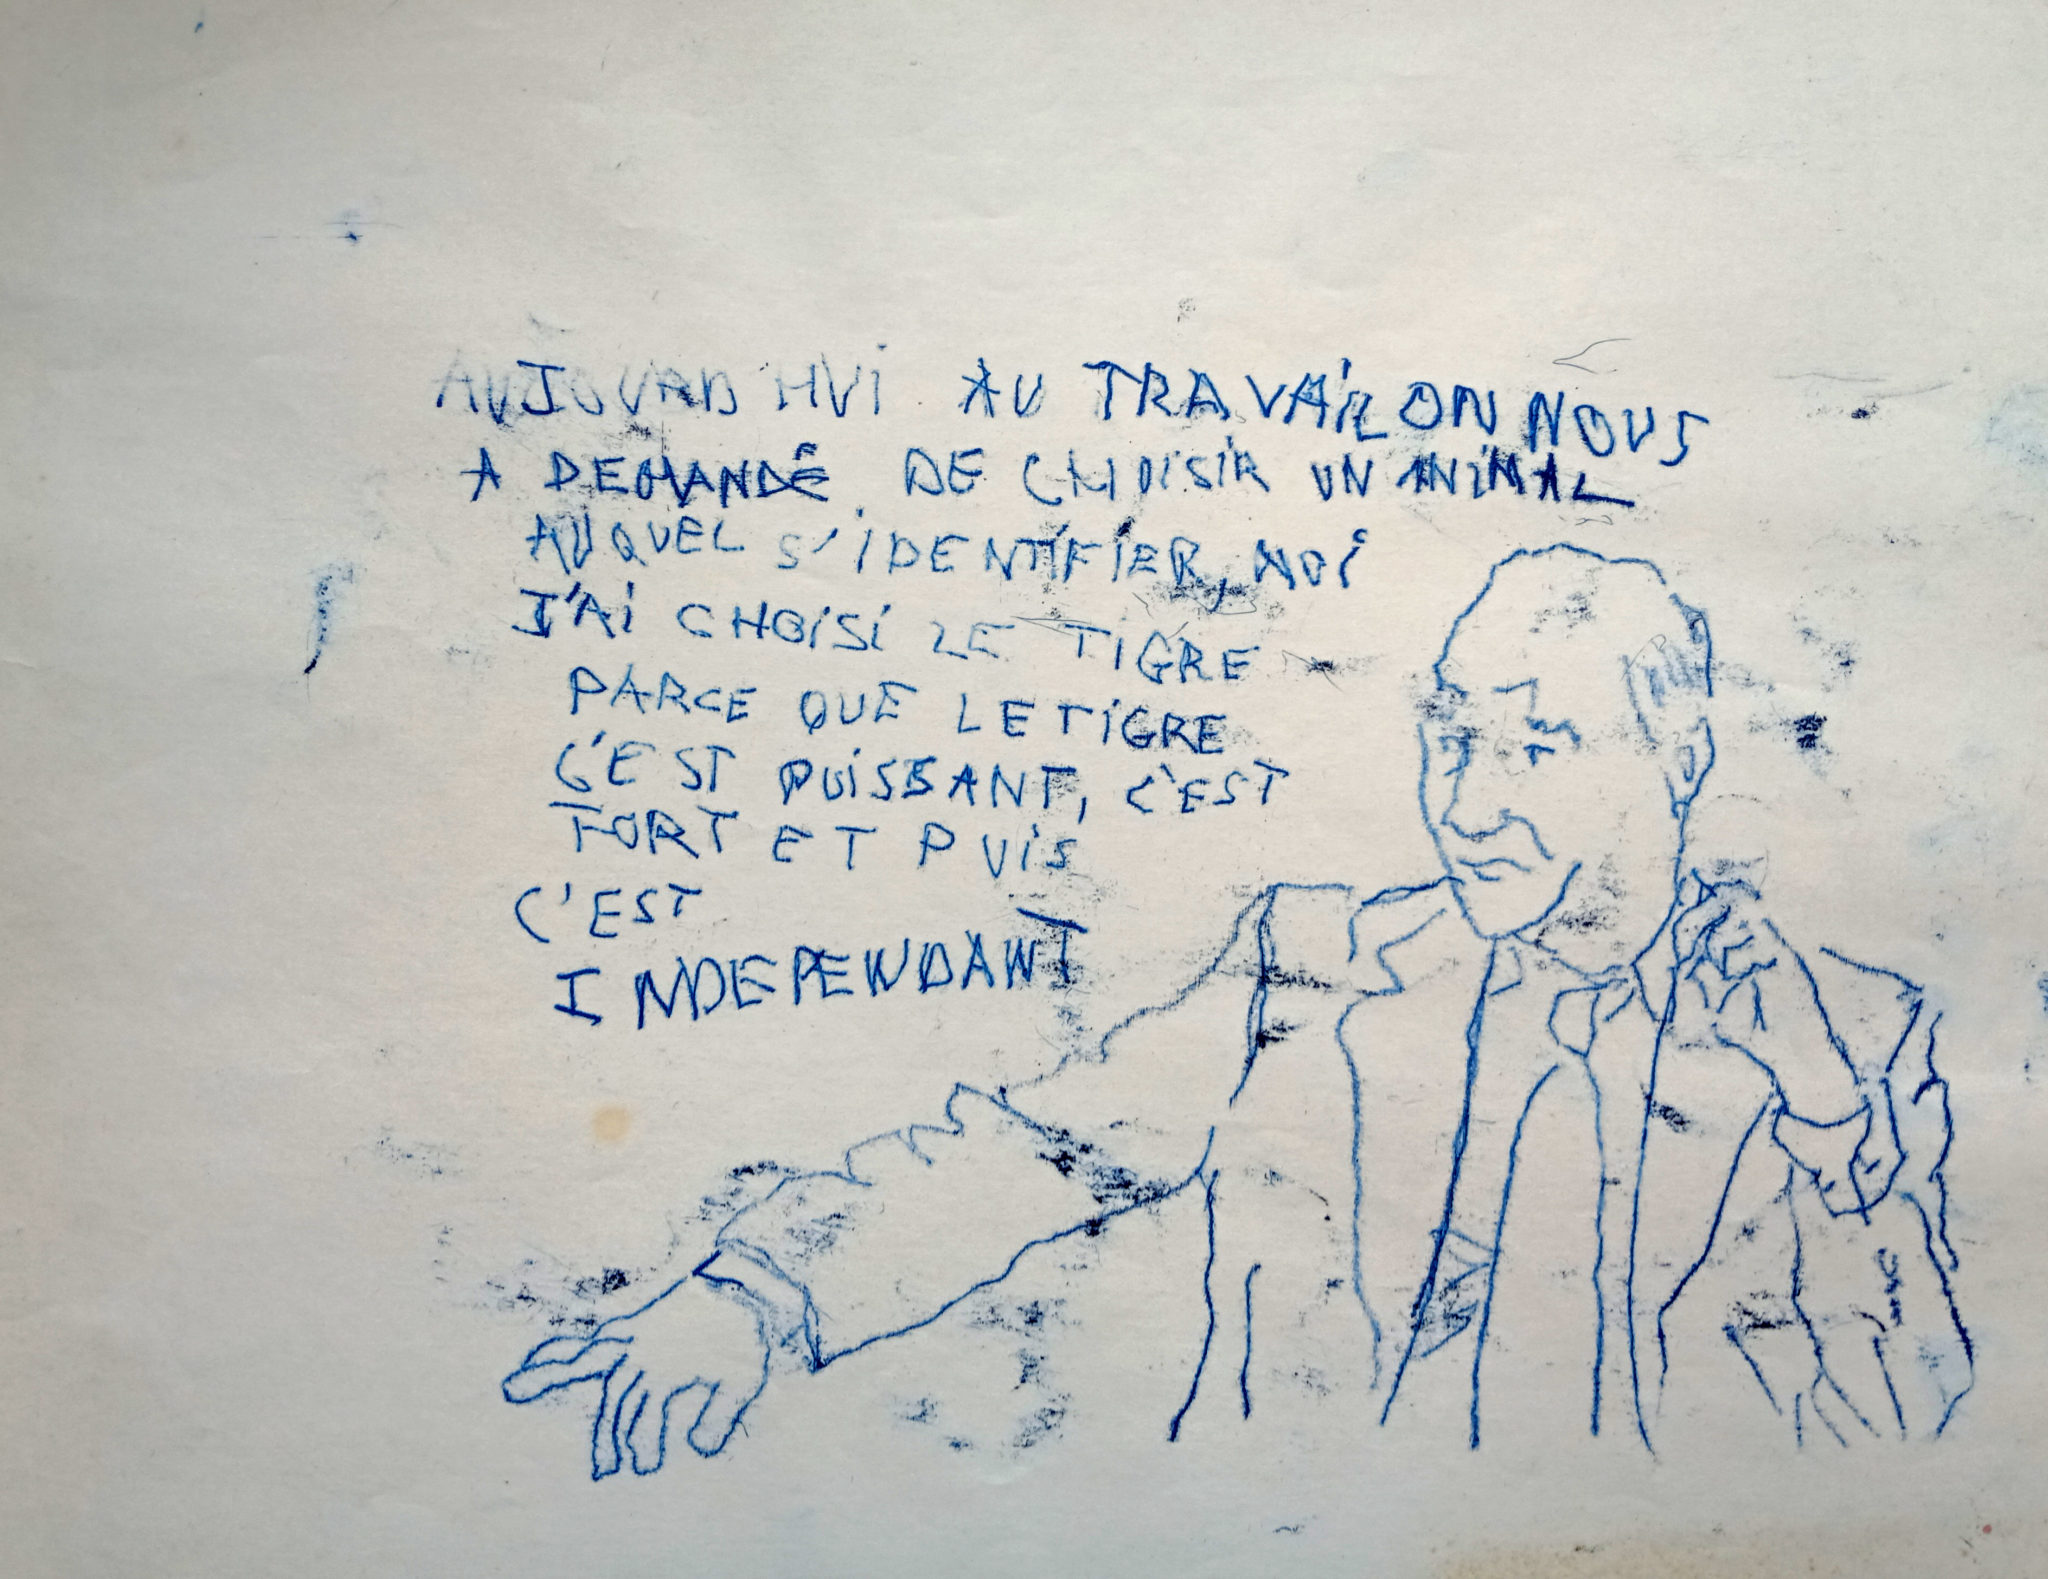 AUJOURD HUI AU TRAVAIL ON NOUS
A DEMANDÉ DE CHOISIR UN ANIMAL
AUQUEL S'IDENTIFIER, MOI
J'AI CHOISI LE TIGRE
PARCE QUE LE TIGRE
C'EST PUISSANT, C'EST
FORT ET PUIS
C'EST
INDEPENDANT